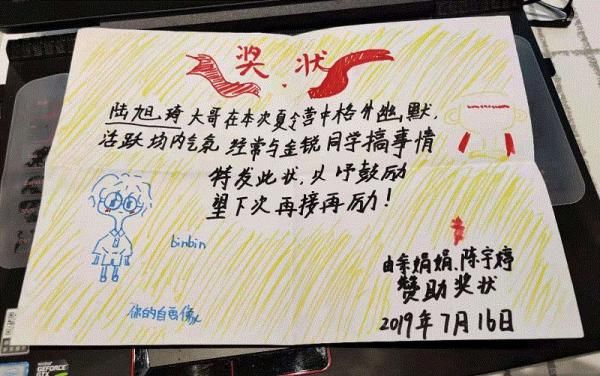 奖状
陆旭琦大哥在本次夏令营中格外幽默,
活跃场内气氛 经常与金锐同学搞事情
特发此状,以吁鼓励
望下次再接再励!
binbin
你的自画像
由余娟娟、陈宇婷
赞助奖状
2019年7月16日
GEFORCE
GTX